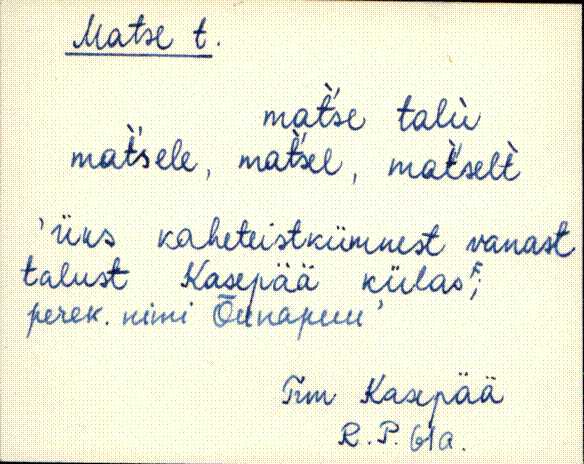 Matse t.
mat̀'se talù
mat̀'sele, mat̀'sel, mat̀'selt̀
'üks kaheteistkümnest vanast
talust Kasepää külas';
perek. nimi Õunapuu'
Trm Kasepää
R.P. 61a.